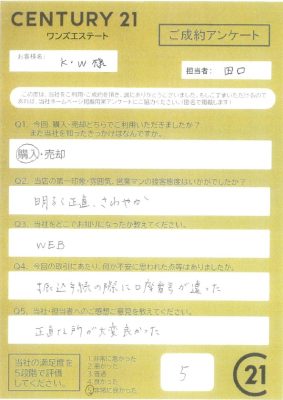 CENTURY 21
ワンズエステート
ご成約アンケート
お客様名:
K・W様
担当者: 田口
この度は、当社をご利用・ご成約を頂き、誠にありがとうございました。もしこすまいただけるので
あれば、当社ホームページ掲載用アンケートにご協力ください(匿名で掲載します)
Q1. 今回、購入・売却どちらでご利用いただきましたか?
また当社を知ったきっかけはなんですか。
購入・売却
Q2. 当店の第一印象・雰囲気、営業マンの接客態度はいかがでしたか?
明るく正直、さわやか
Q3. 当社をどこでお知りになったか教えてください。
WEB
Q4. 今回の取引にあたり、何か不安に思われた点等はありましたか。
振込手続の際に口座番号が違った
Q5. 当社・担当者へのご感想ご意見を教えてください。
正直な所が大変良かった
当社の満足度を
5段階で評価
してください。
1.非常に悪かった
2.悪かった
3.普通
4.良かった
5.非常に良かった
5
C21